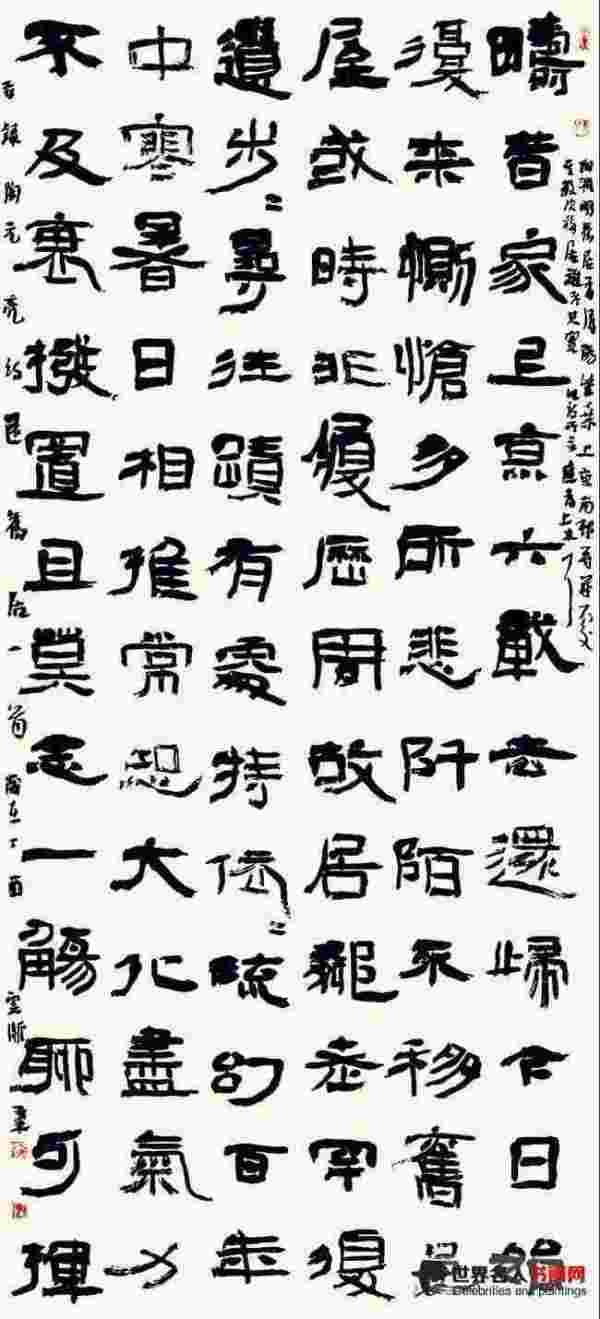 疇昔家上亰六載去還歸今日始
復來惻愴多所悲阡陌不移舊邑
屋或時非履歷周故居鄰老罕復
遺步々尋往蹟有處特依々流幻百年
中寒暑日相推常恐大化盡氣力
不及衰撥置且莫念一觴聊可揮
右錄陶元亮詩還舊居一首 歲在丁酉
世界名人书画网
Celebrities and paintings